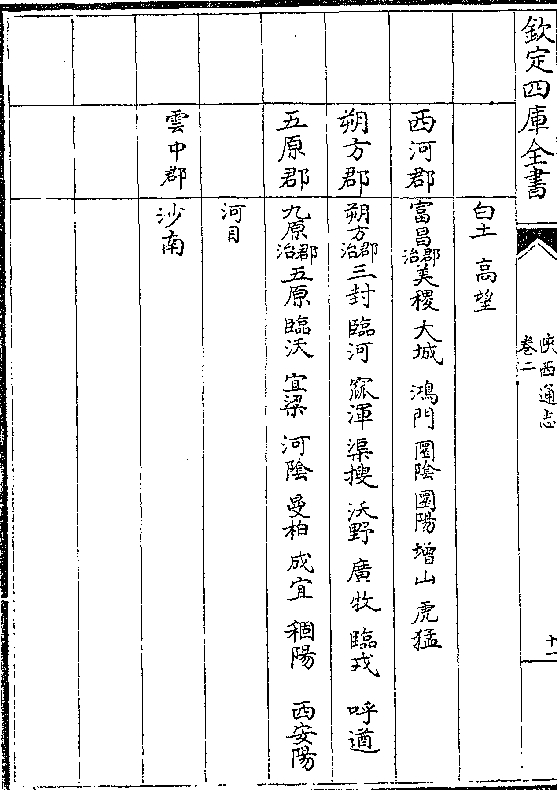 欽定四庫全書
陜西通志
卷二
十一
白土 高望
西河郡 富昌郡治 美稷 大城 鴻門 圜陰 圜陽 增山 虎猛
朔方郡 朔方郡治 三封 臨河 窳渾 渠搜 沃野 廣牧 臨戎 呼遒
五原郡 九原郡治 五原 臨沃 宜梁 河陰 曼柏 成宜 稒陽 西安陽
河目
雲中郡 沙南